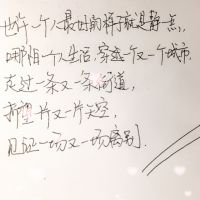 也许一个人最好的样子就是静一点,
哪怕一个人生活,穿越一个又一个城市,
走过一条又一条街道,
仰望一片又一片天空,
见证一场又一场离别.